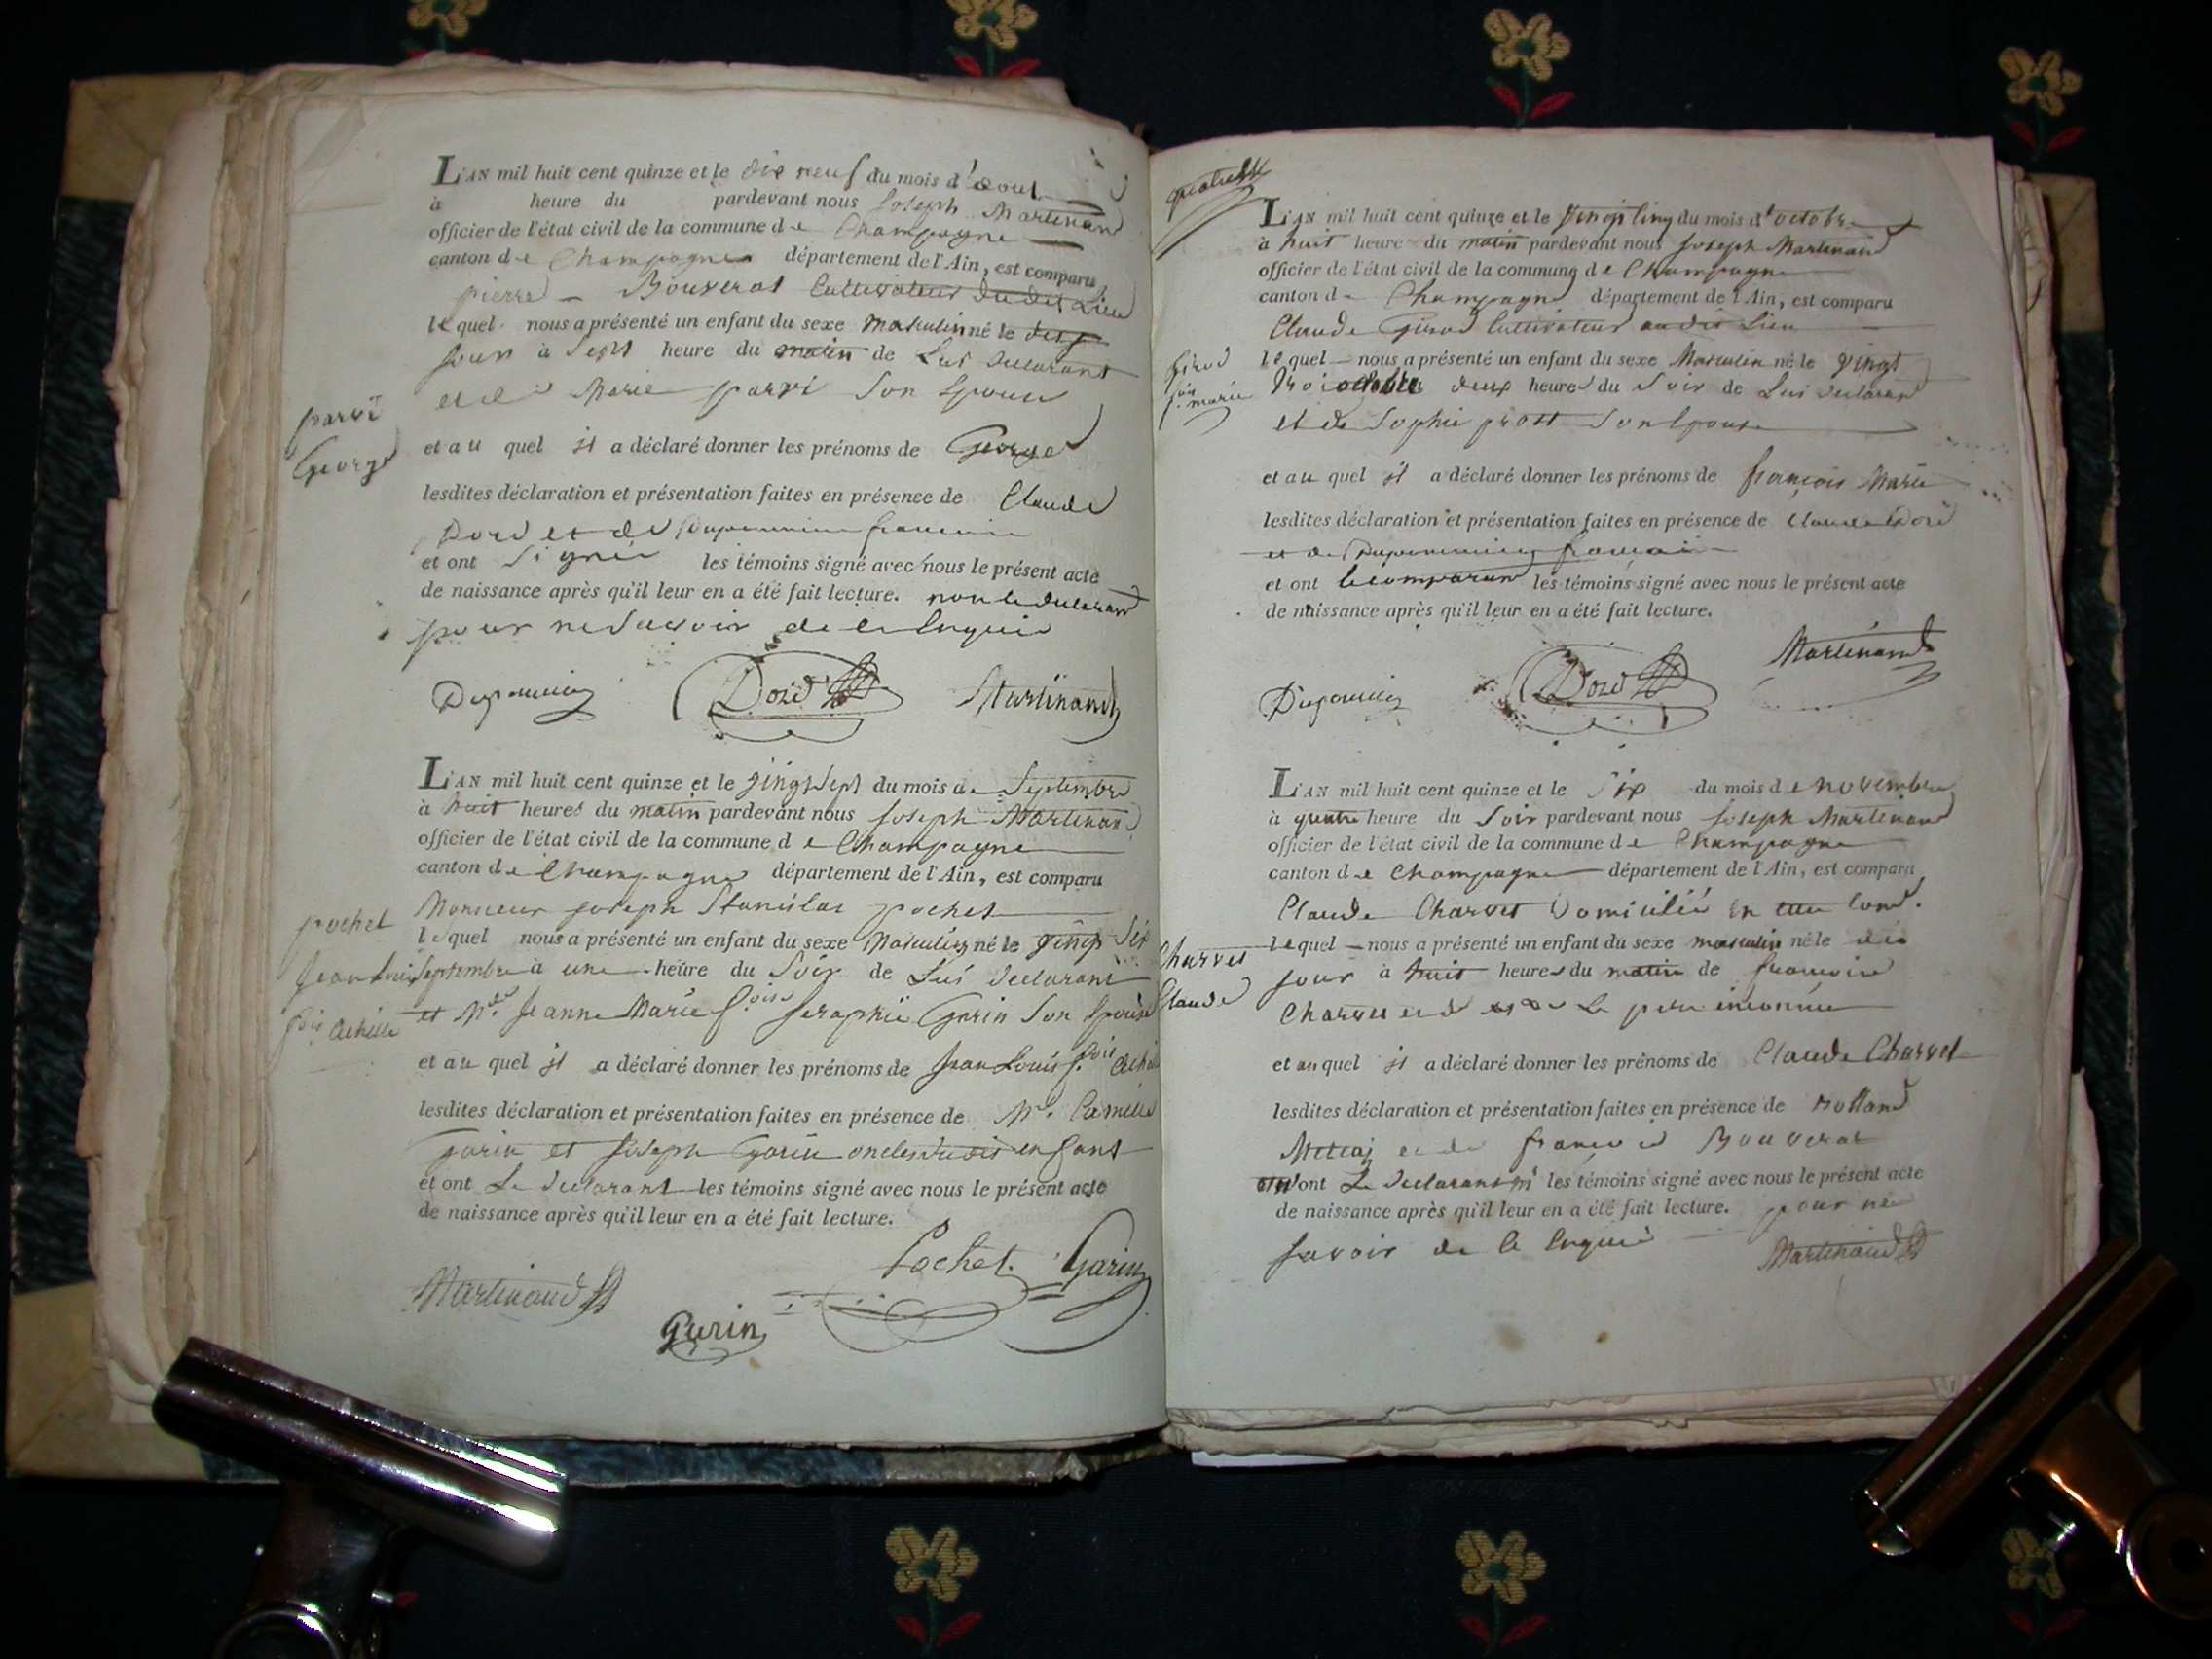 L'AN mil huit cent quinze et le dix neuf du mois d'aout
à heure du pardevant nous Joseph Martinand
officier de l'état civil de la commune de Champagne
canton de Champagne département de l'Ain, est comparu
pierre Bouverat Cultivateur dudit Lieu
lequel nous a présenté un enfant du sexe Masculin né le
jour à Sept heure du matin de Lui declarant
et de Marie parvi Son Epouse
parvi
George
et au quel il a déclaré donner les prénoms de George
lesdites déclaration et présentation faites en présence de Claude
Doré et de francois
et ont Signé les témoins signé avec nous le présent acte
de naissance après qu'il leur en a été fait lecture. non le declarant
pour ne Savoir de ce Enquis
Doré Martinand
L'AN mil huit cent quinze et le vingt Sept du mois de Septembre
à huit heures du matin pardevant nous Joseph Martinand
officier de l'état civil de la commune de Champagne
canton de Champagne département de l'Ain, est comparu
Monsieur Joseph Stanislas pochet
pochet
Jean Louis
fois Achille
lequel nous a présenté un enfant du sexe Masculin né le vingt Six
Septembre à une heure du Soir de Lui declarant
et Mde Jeanne Marie foise Seraphie Garin Son Epouse
et au quel il a déclaré donner les prénoms de Jean Louis fois
lesdites déclaration et présentation faites en présence de Mr. Camille
Garin et Joseph Garin oncles dudit enfant
et ont Le declarant les témoins signé avec nous le présent acte
de naissance après qu'il leur en a été fait lecture.
Pochet Garin
Martinand
Garin
L'AN mil huit cent quinze et le vingt Cinq du mois d'octobre
à huit heure du matin pardevant nous Joseph Martinand
officier de l'état civil de la commune de Champagne
canton de Champagne département de l'Ain, est comparu
Claude Girod Cultivateur audit Lieu
Girod
fois marie
lequel nous a présenté un enfant du sexe Masculin né le vingt
trois octobre deux heures du Soir de Lui declarant
et de Sophie prost Son Epouse
et au quel il a déclaré donner les prénoms de françois Marie
lesdites déclaration et présentation faites en présence de Claude Doré
et de françois
et ont le comparant les témoins signé avec nous le présent acte
de naissance après qu'il leur en a été fait lecture.
Doré Martinand
L'AN mil huit cent quinze et le Six du mois de novembre
à quatre heure du Soir pardevant nous Joseph Martinand
officier de l'état civil de la commune de Champagne
canton de Champagne département de l'Ain, est comparu
Claude Charvet Domicilié en
Charvet
Claude
lequel nous a présenté un enfant du sexe masculin né le
jour à huit heures du matin de francoise
Charvet et de Le pere inconnu
et au quel il a déclaré donner les prénoms de Claude Charvet
lesdites déclaration et présentation faites en présence de
et de francois Bouverat
ont Le declarant les témoins signé avec nous le présent acte
de naissance après qu'il leur en a été fait lecture. pour ne
savoir de ce Enquis
Martinand